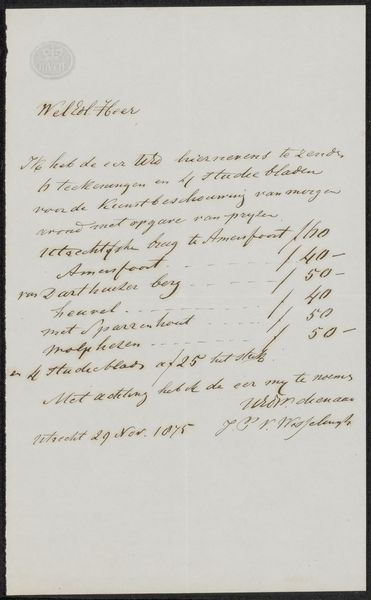 BATH
Wel Ed. Heer
Ik heb de eer UEd hiernevens te zenden
6 teekeningen en 4 studie bladen
voor de Kunstbeschouwing van morgen
avond met opgave van pryzen
Utrechtsche brug te Amersfoort f 60
Amersfoort f 40 –
van Darthuizer berg f 50 –
heuvel f 40
met Sparrenhout f 50
Wolphezen f 50 –
en 4 studieblad a f 25 het stuk.
Met achting heb ik de eer my te noemen
UEdW dienaar
Utrecht 29 Nov. 1875 J P V. Wisselingh